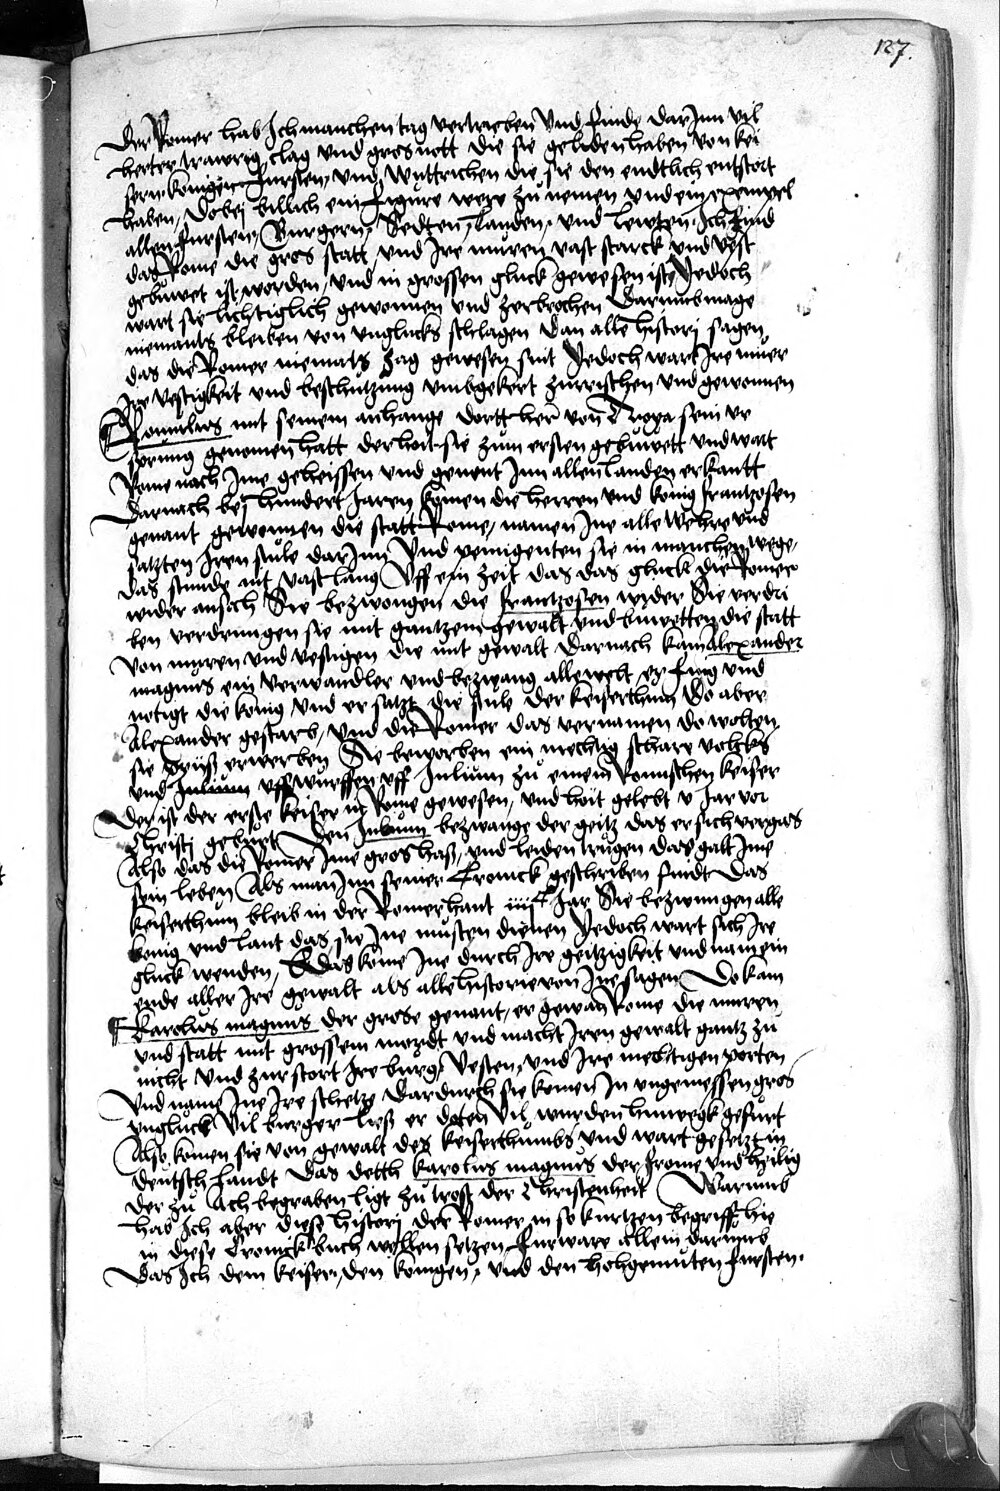 127.
Der Romer hab Ich manchen tag vertrieben Vnd finde dar Jnn vil
herter trawrig clag vnd gros nott die sie geliden haben von kei
sern konigen fursten, vnd wuttrichen die sie den endtlich entstort
haben, Dobei billich ein figure were zu nemen vnd ein exempel
allen fursten, Burgern, Stedten, Landen, vnd lewten, Ich find
das Rome die gros statt vnd Ire muren vast starck vnd vest
gebuwet ist worden, vnd in grossen gluck gewesen ist, Jedoch
wart sie lichtiglich gewonnen vnd zerbrochen Darumb mage
niemants bleiben von vnglucks schlagen Dan alle histori sagen
das die Romer niemals zag gewesen sint Jedoch wart Ire muer
Ire vestigkeit vnd beschutzung vmbgekert zurrischen vnd gewonnen
Romulus mit seinem anhange dortt her von Troya sein vr
sprung genomen hatt der hat sie zum ersten gebuwett vnd wart
Rome nach Ime geheissen vnd genent Inn allen landen erkantt
Darnach bej hundert Jaren komen die herren vnd konig frantzosen
genant gewonnen die statt Rome, namen Ine alle wehre vnd
satzten Iren stule dar Inn Vnd peinigenten sie in manchem wege,
das stunde nit vast lang Vff ein zeit das das gluck die Romer
wider ansach Sie bezwongen die frantzosen wyder Sie verdri
ben verdrungen sie mit gantzem gewalt vnd buwetten die statt
von muren vnd vestigen die mit gewalt Darnach kam Alexander
magnus ein verwandler vnd bezwang alle welt er fing vnd
notigt die konig vnd er satzt die stule der keiserthum Do aber
Alexander gestarb, vnd die Romer das vernamen do wolten
sie priß erwerben Sie bewarben ein mechtig schare volcks
vnd Julium vffwurffen vff Julium zu einem Romschen keiser
Der ist der erste keiser in Rome gewesen, vnd hait gelebt v Jar vor
Christi geburt Den Julium bezwange der geitz das er sich vergas
Also das die Romer Ime gros haß, vnd leiden trugen das galt Ime
sein leben Als man Inn seiner Cronick geschriben findt Das
keiserthum bleib in der Romer hant iiiic Jar Sie bezwungen alle
konig vnd lant das sie Ine musten dienen Jedoch wart sich Ire
gluck wenden, Das kome Ine durch Ire geitzigkeit vnd nam ein
ende aller Ire gewalt als alle historie von Ine sagen Do kam
Karolus magnus der grose genant, er gewan Rome die muren
vnd statt mit grossem mordt vnd macht Iren gewalt gantz zu
nicht Vnd zurstort Ire burg, Vesten, vnd Ire mechtigen porten
Vnd name Ine Ire schetze Dardurch sie komen In vngemessen gros
vngluck Vil burger ließ er doten Vil wurden hinwegk gefurt
Also komen sie von gewalt des keiserthumbs vnd wart gesetzt in
deutsch landt Das dett karolus magnus der frome vnd heilig
der zu Ach begraben ligt zu trost der Christenheit Warumb
hab Ich aber diese histori der Romer in so kurtzen begriff hie
in diese Cronick buch wollen setzen, Furware allein darumb
Das Ich dem keiser, den konigen, vnd den hohgemuten fursten.